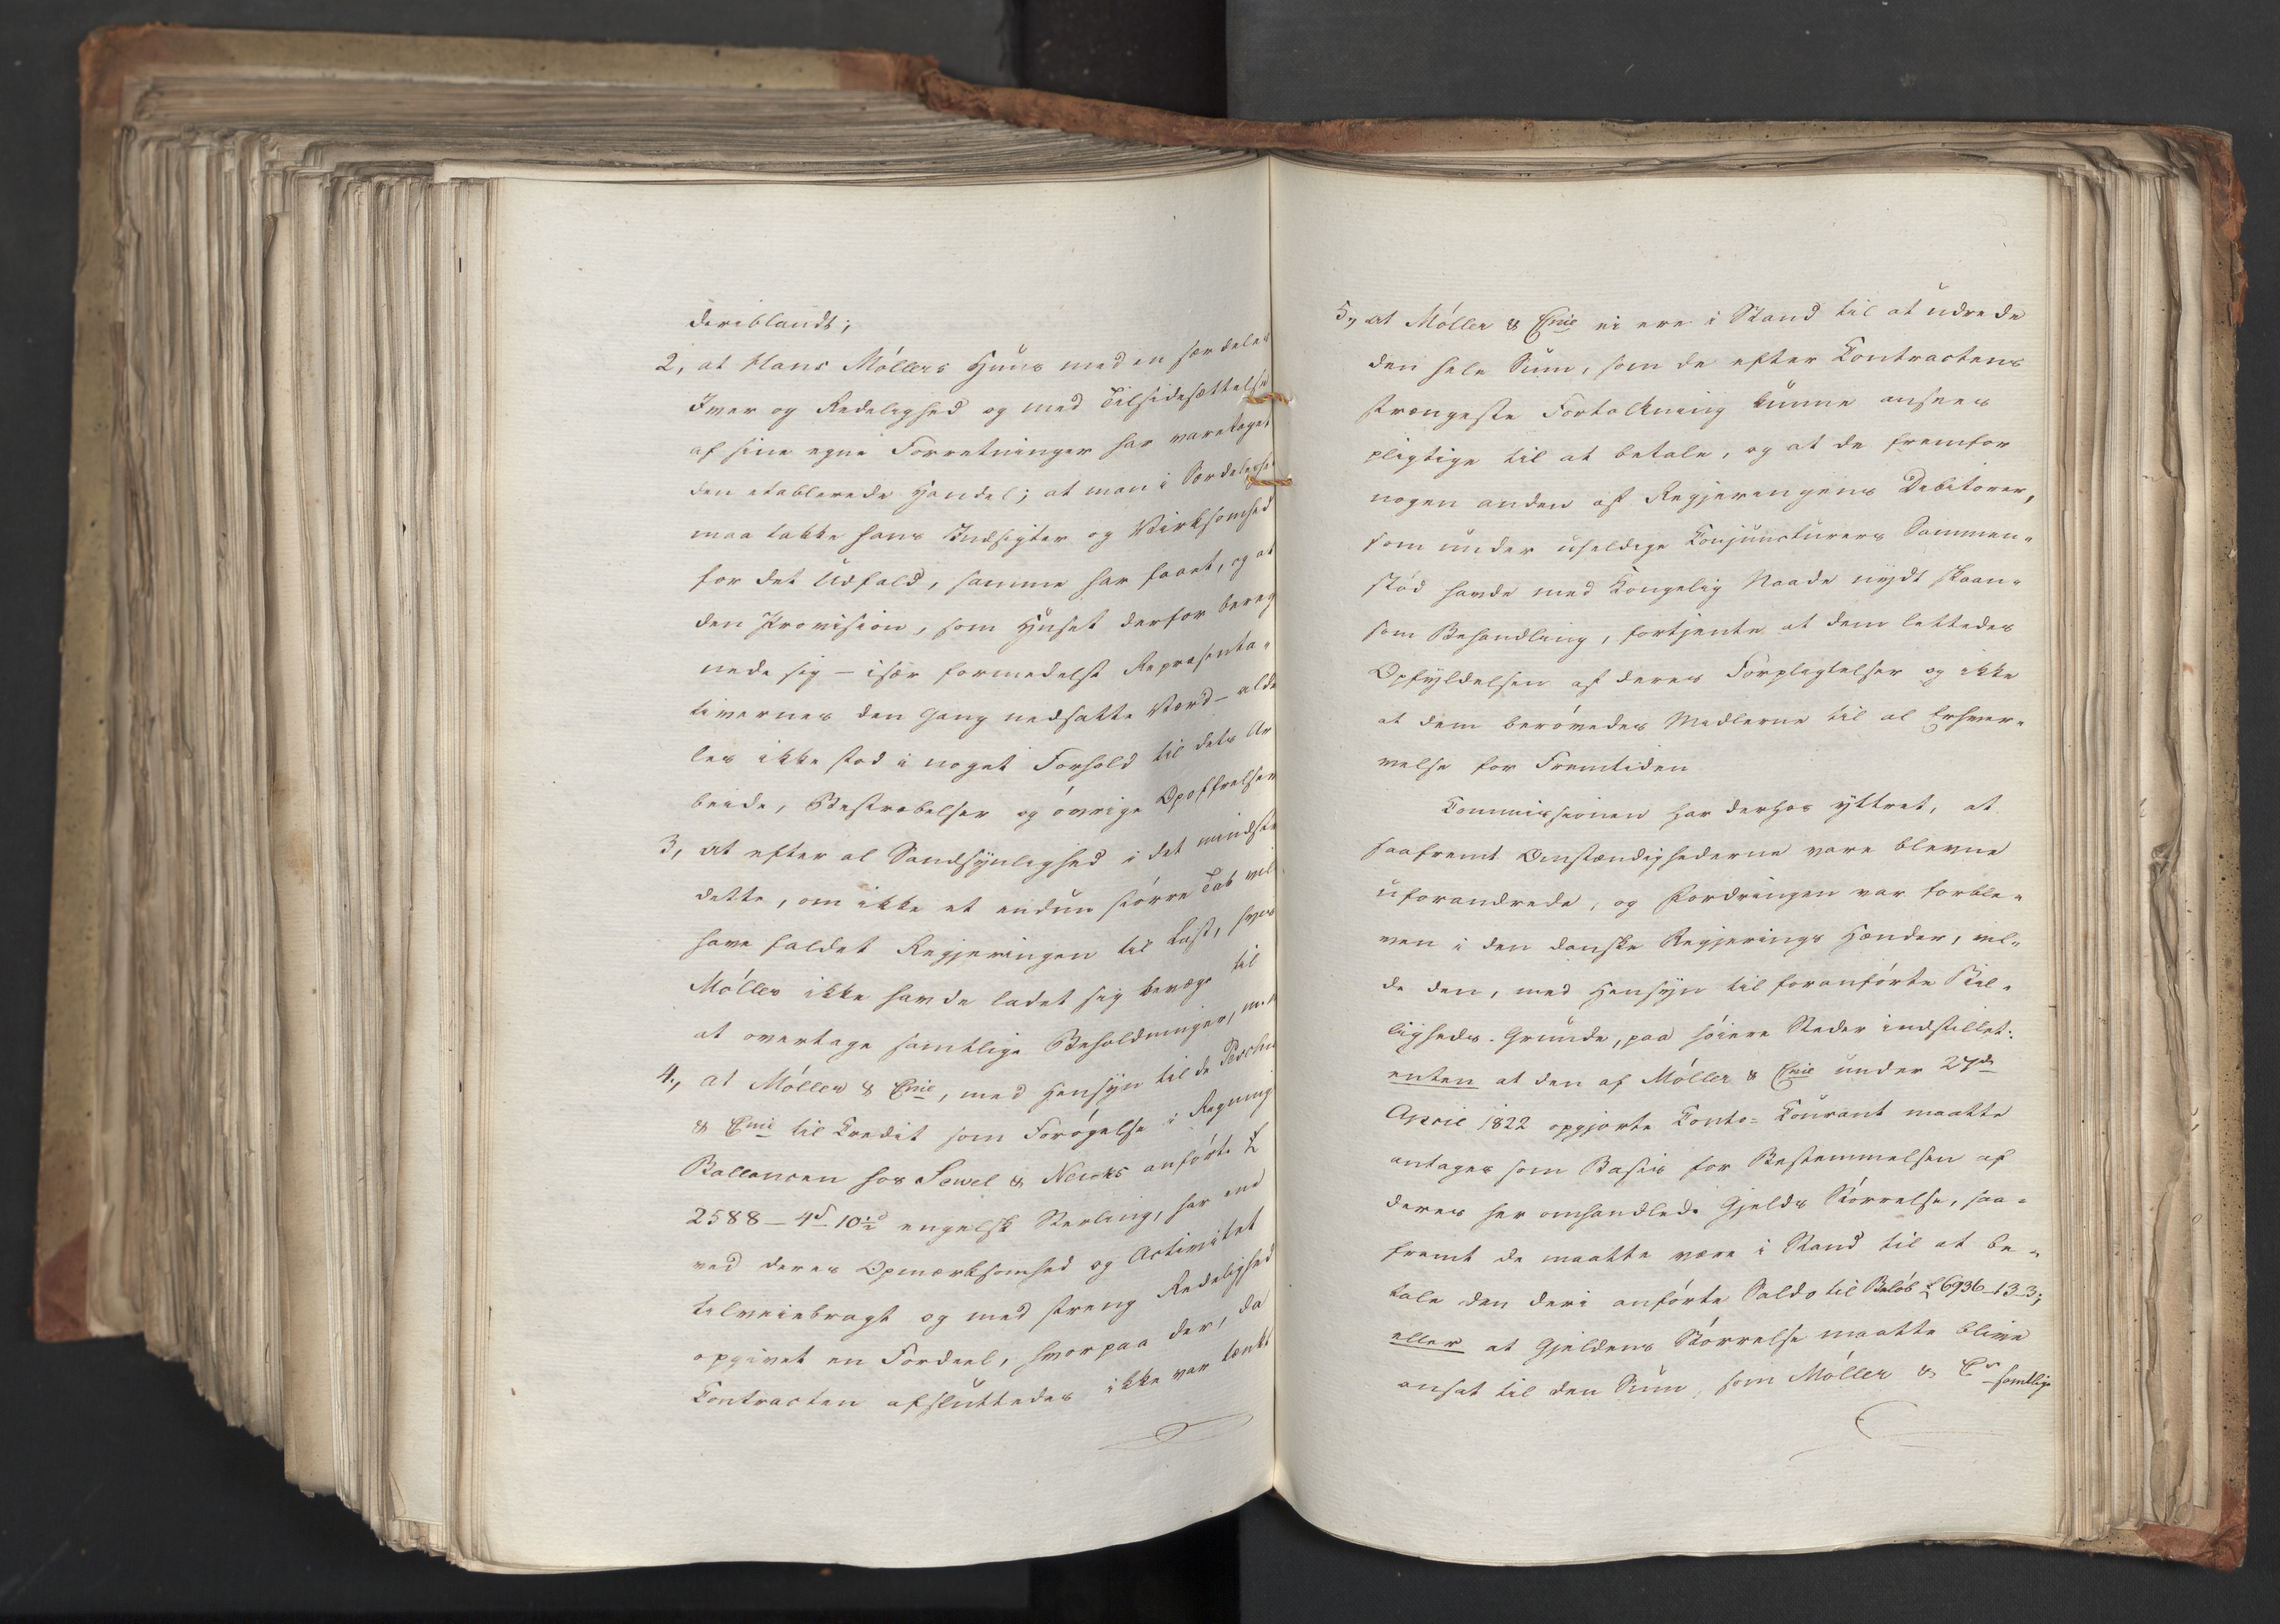 deriblandt;
2, at Hans Möllers Huus med en særdeles
Iver og Redelighed og med Tilsidesættelse
af sine egne Forretninger har varetaget
den etablerede Handel; at man i Særdeleshed
maa takke hans Indsigter og Virksomhed
for det Udfald, samme har faaet, og at
den Provision, som Huset derfor bereg
nede sig – især formedelst Repræsenta-
tivernes den Gang nedsatte Værd – alde
les ikke stod i noget Forhold til dets Ar
beide, Bestræbelser og övrige Opoffrelser
3, at efter al Sandsynlighed i det mindste
dette, om ikke et endnu större Tab vil
have faldet Regjeringen til Last, hvis
Möller ikke havde ladet sig bevæge til
at overtage samtlige Beholdninger,
4, at Möller & Cmie, med Hensyn til de
& Cmie til Credit som Forögelse i Regning
Ballancen hos Sewel & Necks anförte £
2588 – 4s 10½d engelsk Sterling, har
ved deres Opmærksomhed og Activitet
tilveiebragt og med streng Redelighed
opgivet en Fordeel, hvorpaa der, da
Contracten afsluttedes ikke var tænkt
5, at Möller & Cmie ei ere i Stand til at udrede
den hele Sum, som de efter Contractens
strængeste Fortolkning kunne ansees
pligtige til at betale, og at de fremfor
nogen anden af Regjeringens Debitorer,
som under uheldige Conjuncturers Sammen-
stöd havde med Kongelig Naade nydt skaan-
som Behandling, fortjente at dem lettedes
Opfyldelsen af deres Forpligtelser og ikke
at dem berövedes Midlerne til al Erhver-
velse for Fremtiden
Commissionen har derhos yttret, at
saafremt Omstændighederne vare blevne
uforandrede, og Fordringen var forble-
ven i den danske Regjerings Hænder, vil-
de den, med Hensyn til foranförte Bil-
ligheds-Grunde, paa höiere Steder indstillet:
enten at den af Möller & Cmie under 27de
April 1822 opgjorte Conto-Courant maatte
antages som Basis for Bestemmelsen af
deres her omhandlede Gjelds Störrelse, saa-
fremt de maatte være i Stand til at be-
tale den deri anförte Saldo til Belöb £ 6936-13-3;
eller at Gjeldens Störrelse maatte blive
ansat til den Sum, som Möller & Co samtlige